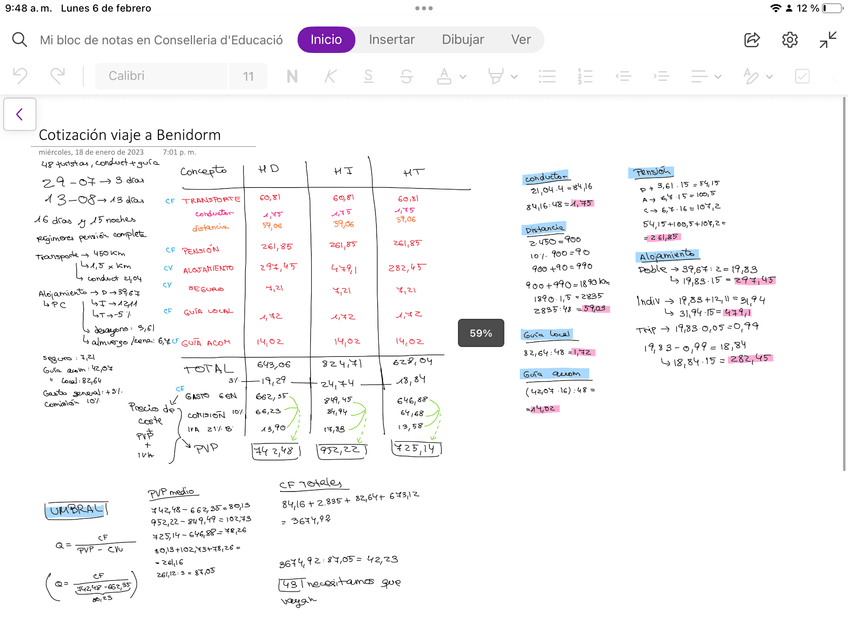 9:48 a. m. Lunes 6 de febrero
12 %
Mi bloc de notas en Conselleria d'Educació
Inicio
Insertar
Dibujar
Ver
Calibri
11
N K S S A
Cotización viaje a Benidorm
miércoles, 18 de enero de 2023 7:01 p. m.
48 turistas, conduct + guía
29-07 → 3 días
13-08 → 13 días
16 días y 15 noches
Régimenes pensión completa
Transporte → 450 Km
↳ 1,5 x Km
↳ conduct 21,04
Alojamiento → D → 39,67
↳ PC ↳ I → 12,11
↳ T → -5%
↳ desayuno: 3,61
↳ almuerzo/cena: 6,7
Seguro: 7,21
Guía acom: 42,07
" Local: 82,64
Gasto general: +3%
Comisión 10%
Concepto HD HI HT
CF TRANSPORTE 60,81 60,81 60,81
conductor 1,75 1,75 1,75
distancia 59,06 59,06 59,06
CF PENSIÓN 261,85 261,85 261,85
CV ALOJAMIENTO 297,45 479,1 282,45
CV SEGURO 7,21 7,21 7,21
CF GUÍA LOCAL 1,72 1,72 1,72
CF GUÍA ACOM 14,02 14,02 14,02
TOTAL 643,06 824,71 628,04
3% 19,29 24,74 18,84
CF
GASTO GEN 662,35 849,45 646,88
COMISIÓN 10% 66,23 84,94 64,68
IVA 21% B 13,90 17,83 13,58
PVP 742,48 952,22 725,14
Precio de
coste
+
PVP
+
IVA
59%
conductor
21,04·4 = 84,16
84,16:48 = 1,75
Distancia
2·450 = 900
10% 900 = 90
900 + 90 = 990
900 + 990 = 1890 Km
1890·1,5 = 2835
2835:48 = 59,05
Guía local
82,64:48 = 1,72
Guía acom
(42,07·16):48 =
= 14,02
Pensión
D → 3,61·15 = 54,15
A → 6,7·15 = 100,5
C → 6,7·16 = 107,2
54,15 + 100,5 + 107,2 =
= 261,85
Alojamiento
Doble → 39,67:2 = 19,83
↳ 19,83·15 = 297,45
Indiv → 19,83 + 12,11 = 31,94
↳ 31,94·15 = 479,1
Trip → 19,83·0,05 = 0,99
19,83 - 0,99 = 18,84
↳ 18,84·15 = 282,45
UMBRAL
Q = CF
PVP - CVu
Q = CF
742,48 - 662,35
80,23
PVP medio
742,48 - 662,35 = 80,13
952,22 - 849,49 = 102,73
725,14 - 646,88 = 78,26
80,13 + 102,73 + 78,26 =
= 261,16
261,12:3 = 87,05
CF Totales
84,16 + 2.835 + 82,64 + 673,12
= 3674,92
3674,92:87,05 = 42,23
43 necesitamos que
vayan